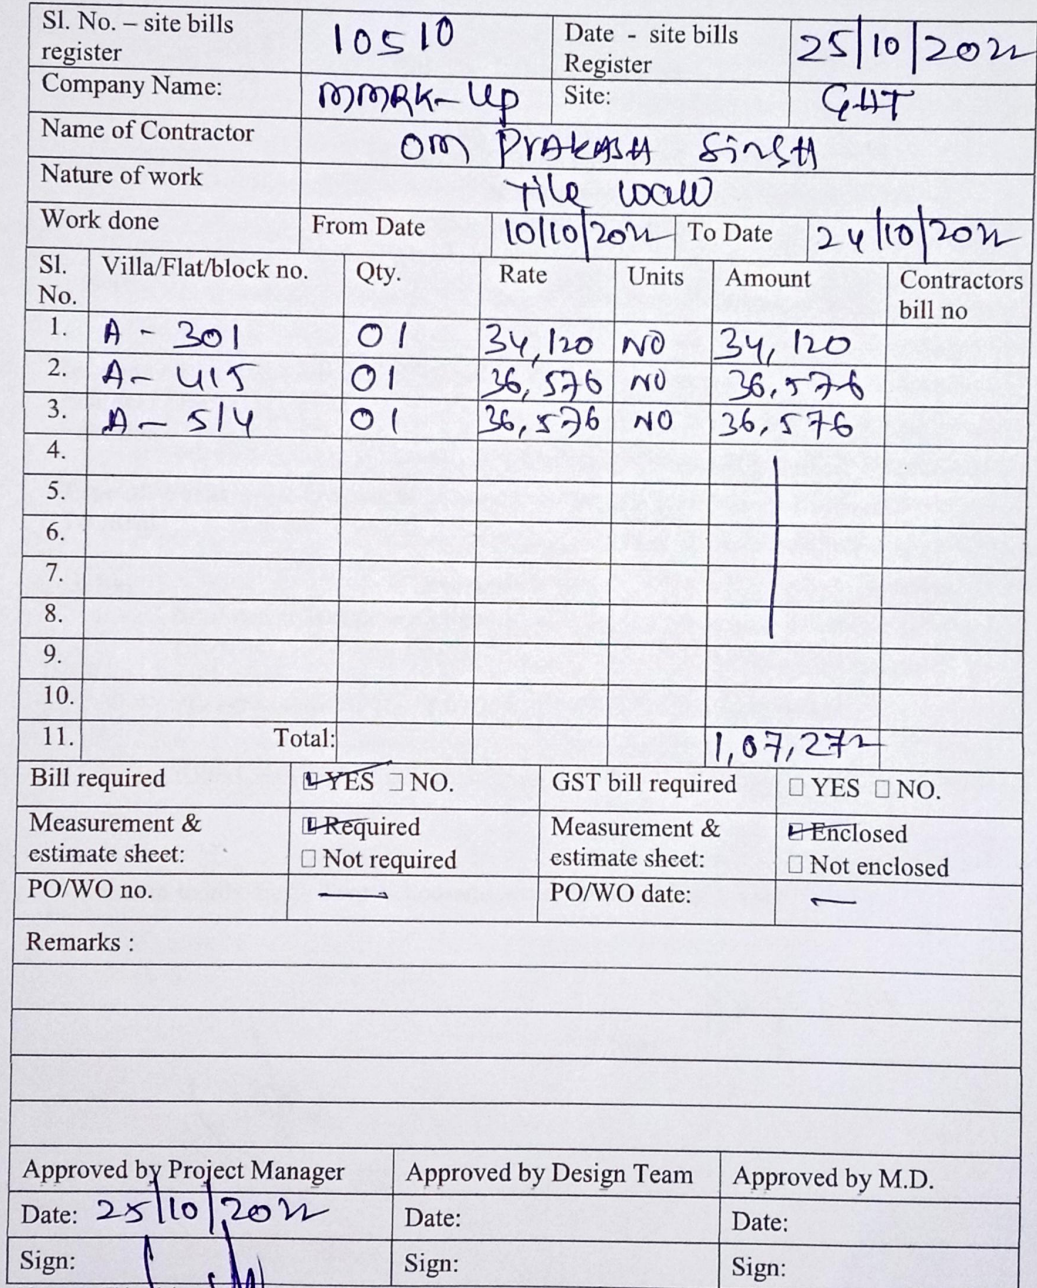 Sl. No. – site bills register 10510 Date - site bills Register 25/10/2022
Company Name: MMRK-UP Site: GHT
Name of Contractor OM PRAKASH SINGH
Nature of work Tile work
Work done From Date 10/10/2022 To Date 24/10/2022
Sl. No. Villa/Flat/block no. Qty. Rate Units Amount Contractors bill no
1. A - 301 01 34,120 NO 34,120
2. A - 415 01 36,576 NO 36,576
3. A - 514 01 36,576 NO 36,576
4.
5.
6.
7.
8.
9.
10.
11. Total: 1,07,272
Bill required ☑ YES ☐ NO. GST bill required ☐ YES ☐ NO.
Measurement & estimate sheet: ☑ Required ☐ Not required Measurement & estimate sheet: ☑ Enclosed ☐ Not enclosed
PO/WO no. — PO/WO date: —
Remarks :
Approved by Project Manager Approved by Design Team Approved by M.D.
Date: 25/10/2022 Date: Date:
Sign: Sign: Sign: